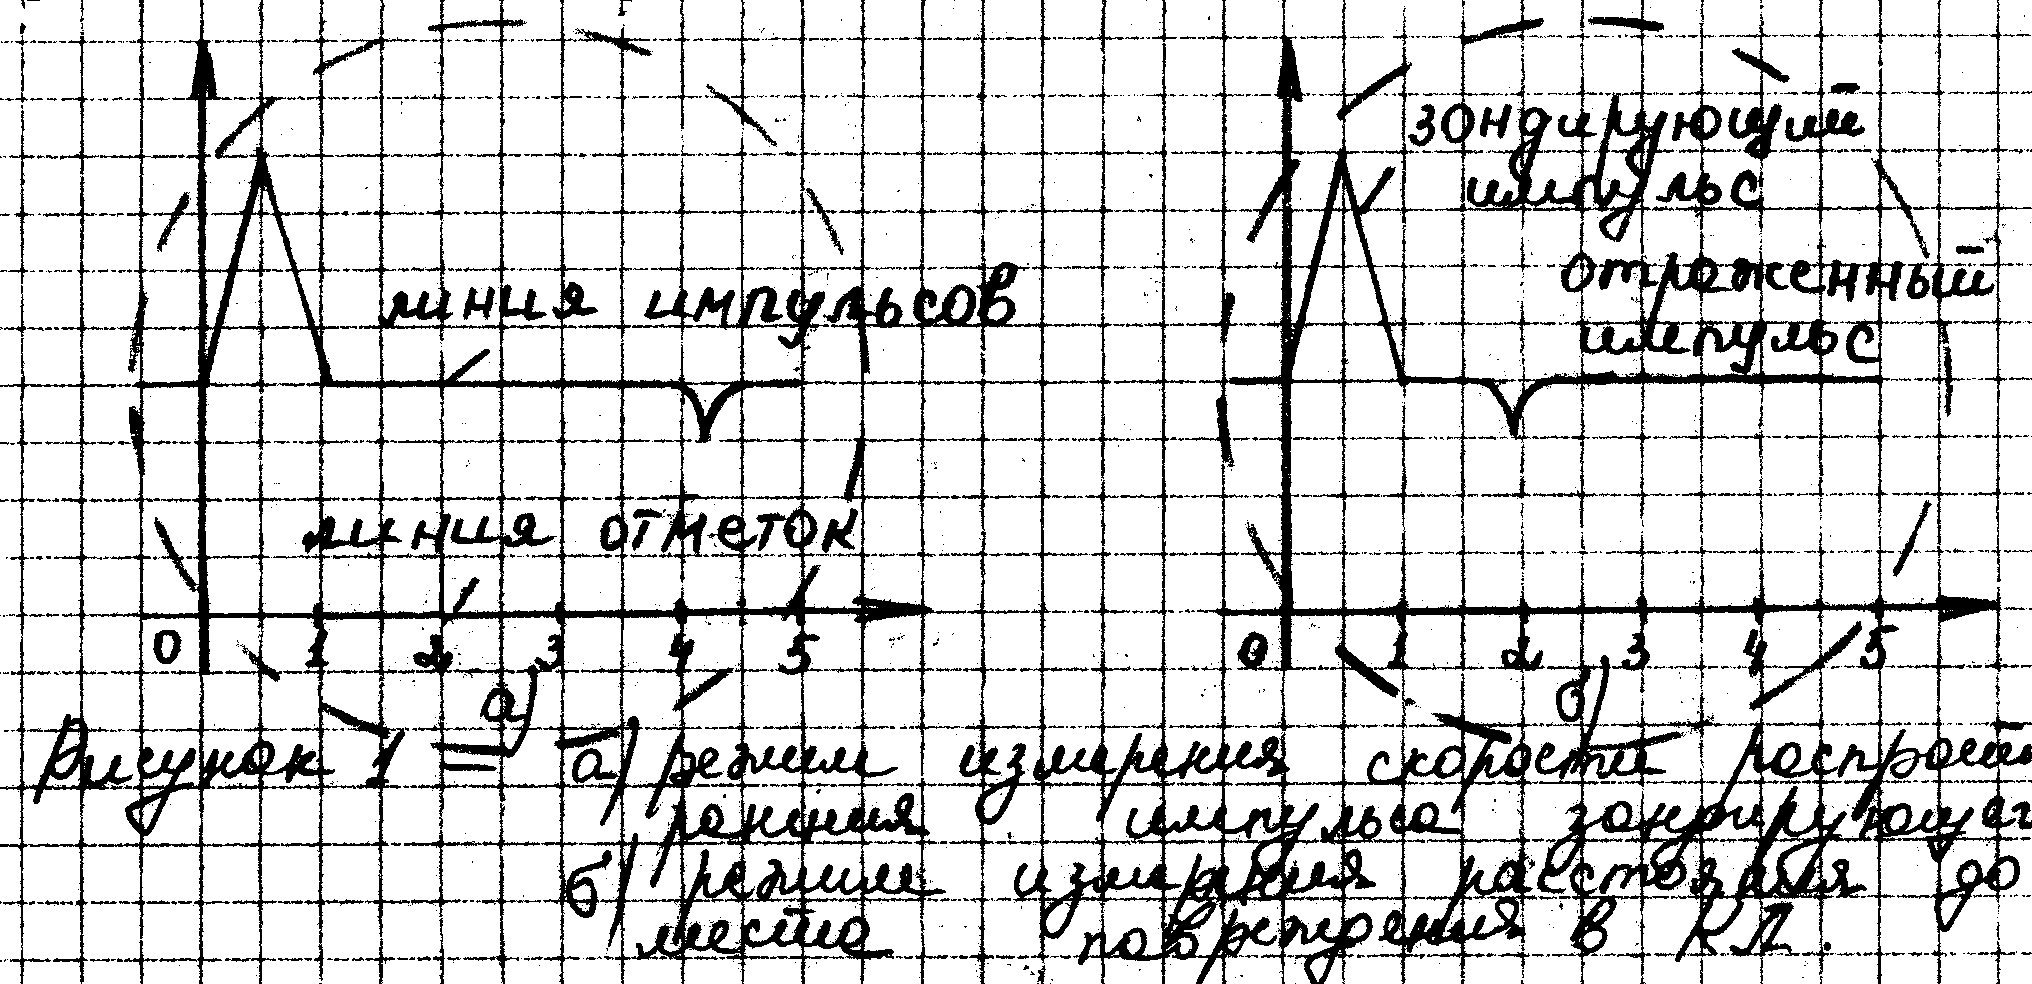 зондирующий
импульс
отраженный
импульс
линия импульсов
линия отметок
0 1 2 3 4 5
0 1 2 3 4 5
а)
б)
Рисунок 1 = а) режим измерения скорости распрост
ранения импульса зондирующег
б) режим измерения расстояния до
места повреждения в КЛ.